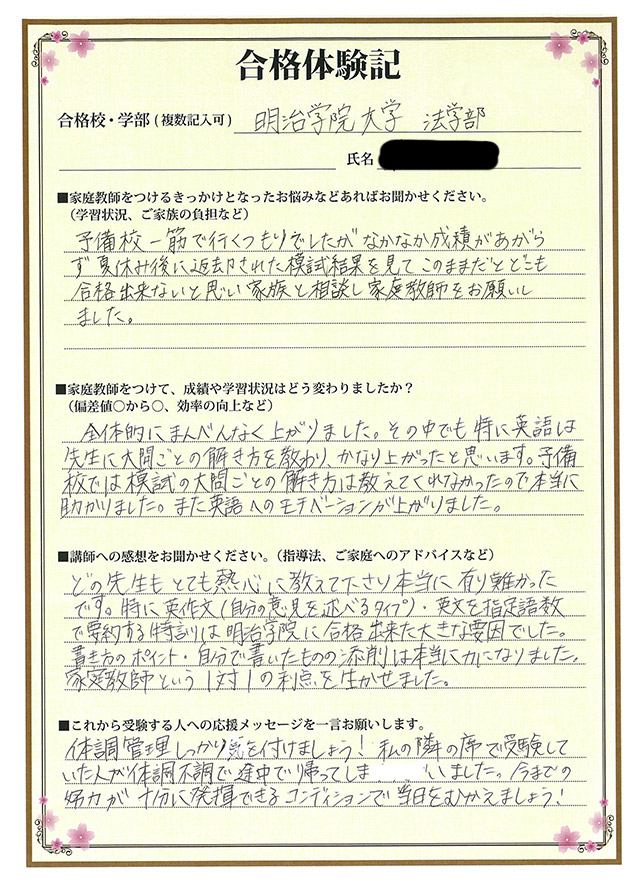 合格体験記
合格校・学部(複数記入可) 明治学院大学 法学部
氏名
■家庭教師をつけるきっかけとなったお悩みなどあればお聞かせください。
(学習状況、ご家族の負担など)
予備校一筋で行くつもりでしたがなかなか成績があがら
ず夏休み後に返却された模試結果を見てこのままだとどこも
合格出来ないと思い家族と相談し家庭教師をお願いし
ました。
■家庭教師をつけて、成績や学習状況はどう変わりましたか？
(偏差値○から○、効率の向上など)
全体的にまんべんなく上がりました。その中でも特に英語は
先生に大問ごとの解き方を教わり、かなり上がったと思います。予備
校では模試の大問ごとの解き方は教えてくれなかったので本当に
助かりました。また英語へのモチベーションが上がりました。
■講師への感想をお聞かせください。(指導法、ご家庭へのアドバイスなど)
どの先生もとても熱心に教えて下さり本当に有り難かった
です。特に英作文(自分の意見を述べるタイプ)・英文を指定語数
で要約する特訓は明治学院に合格出来た大きな要因でした。
書き方のポイント・自分で書いたものの添削は本当に力になりました。
家庭教師という1対1の利点を生かせました。
■これから受験する人への応援メッセージを一言お願いします。
体調管理しっかり気を付けましょう！私の隣の席で受験して
いた人が体調不調で途中で帰ってしま いました。今までの
努力が十分に発揮できるコンディションで当日をむかえましょう！